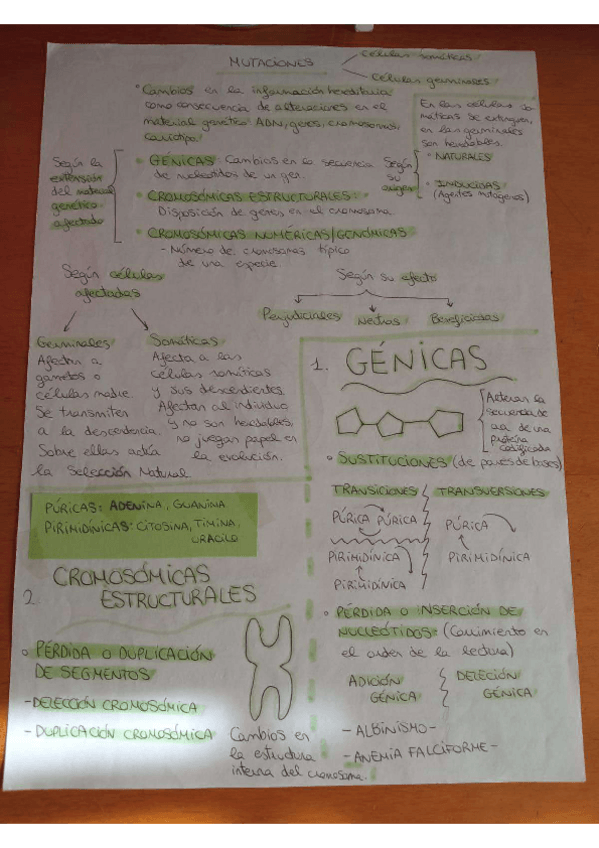 MUTACIONES
Células somáticas
Células germinales
• Cambios en la información hereditaria
como consecuencia de alteraciones en el
material genético ADN, genes, cromosomas,
cariotipo.
En las células so-
máticas se extinguen,
en las germinales
son heredables.
Según la
extensión
del material
genético
afectado
• GÉNICAS: Cambios en la secuencia
de nucleótidos de un gen.
• CROMOSÓMICAS ESTRUCTURALES:
Disposición de genes en el cromosoma.
• CROMOSÓMICAS NUMÉRICAS/GENÓMICAS
- Número de cromosomas típico
de una especie.
Según
su
origen
• NATURALES
• INDUCIDAS
(Agentes mutágenos)
Según células
afectadas
Germinales
Afectan a
gametos o
células madre.
Se transmiten
a la descendencia.
Sobre ellas actúa
la Selección Natural
Somáticas
Afecta a las
células somáticas
y sus descendientes.
Afectan al individuo
y no son heredables,
no juegan papel en
la evolución.
Según su efecto
Perjudiciales Neutras Beneficiosas
PÚRICAS: ADENINA, GUANINA
PIRIMIDÍNICAS: CITOSINA, TIMINA,
URACILO
1. GÉNICAS
Alteran la
secuencia de
aa de una
proteína
codificada
• SUSTITUCIONES (de pares de bases)
TRANSICIONES TRANSVERSIONES
PÚRICA PÚRICA
PIRIMIDÍNICA
PIRIMIDÍNICA
PÚRICA
PIRIMIDÍNICA
• PÉRDIDA O INSERCIÓN DE
NUCLEÓTIDOS: (Corrimiento en
el orden de la lectura)
ADICIÓN
GÉNICA
DELECIÓN
GÉNICA
- ALBINISMO -
- ANEMIA FALCIFORME -
2. CROMOSÓMICAS
ESTRUCTURALES
• PÉRDIDA O DUPLICACIÓN
DE SEGMENTOS
- DELECCIÓN CROMOSÓMICA
- DUPLICACIÓN CROMOSÓMICA
Cambios en
la estructura
interna del cromosoma.